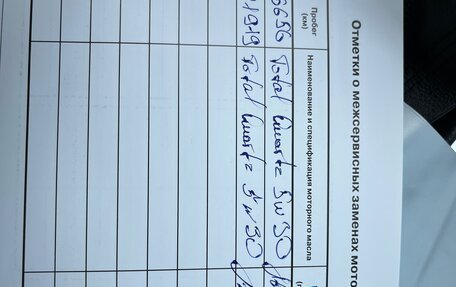 Отметки о межсервисных заменах мото
Пробег
(км)
Наименование и спецификация моторного масла
6656 Total Quartz 5w30
1919 Total Quartz 5w30